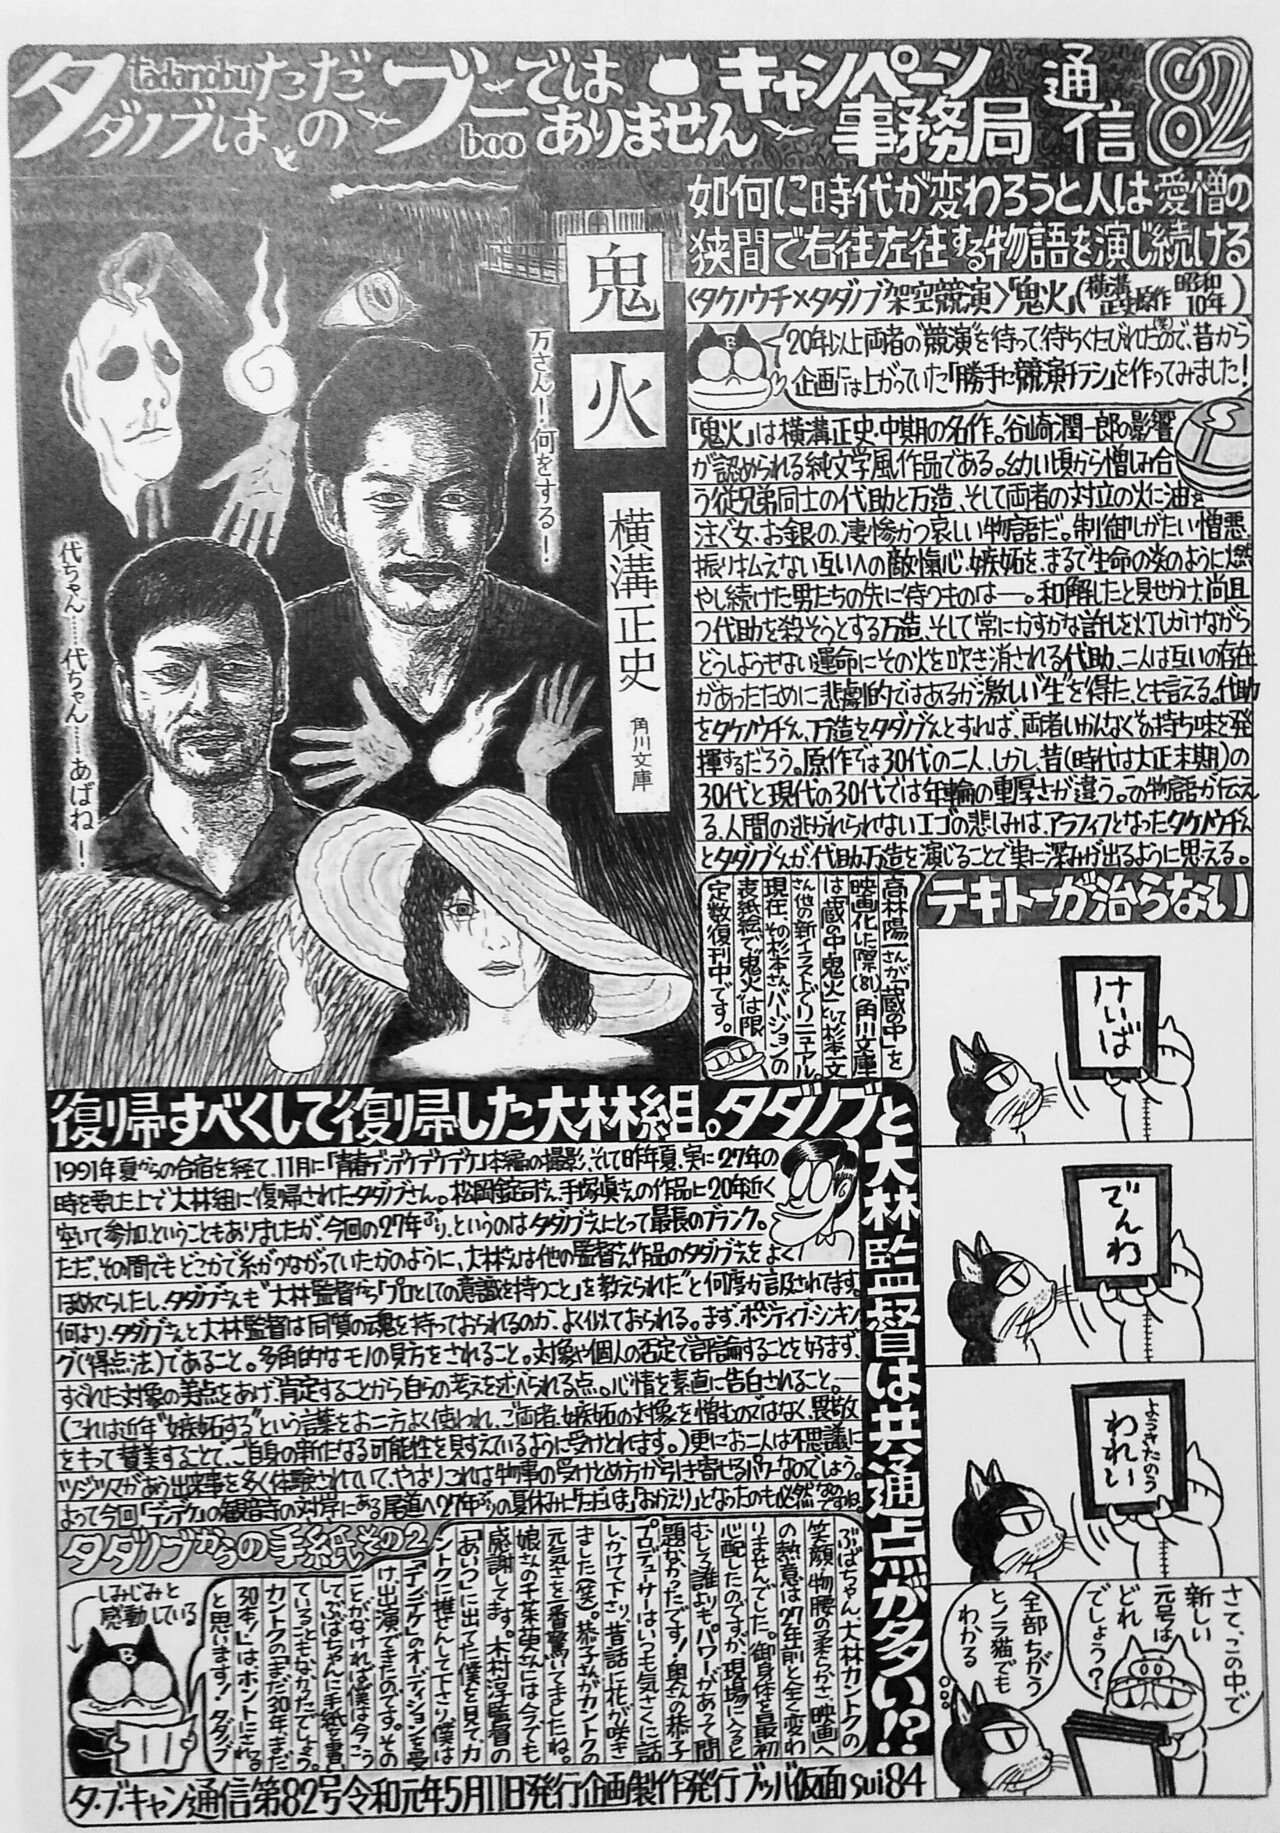 タダノブは、ただのブーではありません
tadanobu
boo
キャンペーン事務局
通信82
如何に時代が変わろうと人は愛憎の
狭間で右往左往する物語を演じ続ける
〈タケノウチ×タダノブ架空競演〉「鬼火」(横溝正史原作 昭和10年)
20年以上両者の“競演”を待って待ちくたびれた(笑)ので、昔から
企画には上がっていた「勝手に競演チラシ」を作ってみました!
鬼火
横溝正史
角川文庫
万さん!何をする!
代ちゃん……代ちゃん……あばねー!
「鬼火」は横溝正史・中期の名作。谷崎潤一郎の影響
が認められる純文学風作品である。幼い頃から憎しみ合
う従兄弟同士の代助と万造、そして両者の対立の火に油を
注ぐ女・お銀の、凄惨かつ哀しい物語だ。制御しがたい憎悪、
振り払えない互いへの敵愾心、嫉妬を、まるで生命の炎のように燃
やし続けた男たちの先に待つものは―。和解したと見せかけ、尚且
つ代助を殺そうとする万造、そして常にかすかな許しを灯しかけながら
どうしようもない運命にその火を吹き消される代助、二人は互いの存在
があったために悲劇的ではあるが激しい“生”を得た、とも言える。代助
をタケノウチさん、万造をタダノブさんとすれば、両者いかんなくその持ち味を発
揮するだろう。原作では30代の二人、しかし、昔(時代は大正末期)の
30代と現代の30代では年輪の重厚さが違う。この物語が伝え
る、人間の逃がれられないエゴの悲しみは、アラフィフとなったタケノウチさん
とタダノブさんが、代助、万造を演じることで実に深みが出るように思える。
高林陽一さんが「蔵の中」を
映画化した際('81)、角川文庫
は「蔵の中・鬼火」として杉本一文
さん他の新イラストでリニューアル。
現在、その杉本さんバージョンの
表紙絵で「鬼火」は限
定数復刊中です。
テキトーが治らない
けいば
でんわ
ようきたのう
われい
さて、この中で
新しい
元号は
どれ
でしょう?
全部ちがう
とノラ猫でも
わかる
復帰すべくして復帰した大林組。タダノブと
大林監督は共通点が多い!?
1991年夏からの合宿を経て、11月に「青春デンデケデケデケ」本編の撮影、そして昨年夏、実に27年の
時を要した上で大林組に復帰されたタダノブさん。松岡錠司さん、手塚眞さんの作品に20年近く
空いて参加、ということもありましたが、今回の27年ぶり、というのはタダノブさんにとって最長のブランク。
ただ、その間でもどこかで糸がつながっていたかのように、大林さんは他の監督さん作品のタダノブさんをよく
ほめてらしたし、タダノブさんも“大林監督から「プロとしての意識を持つこと」を教えられた”と何度か言及されてます。
何より、タダノブさんと大林監督は同質の魂を持っておられるのか、よく似ておられる。まず、ポジティブ・シンキン
グ(得点法)であること。多角的なモノの見方をされること。対象や個人の否定で評論することを好まず、
すぐれた対象の美点をあげ、肯定することから自らの考えを述べられる点。心情を素直に告白されること。―
(これは近年“嫉妬する”という言葉をお二方よく使われ、ご両者、嫉妬の対象を憎むのではなく、畏敬
をもって賛美することで、ご自身の新たなる可能性を見すえているように受けとれます。)更にお二人は不思議に
ツジツマがあう出来事を多く体験されていて、やはりこれは物事の受けとめ方が引き寄せるパワーなのでしょう。
よって今回「デンデケ」の観音寺の対岸にある尾道へ27年ぶりの夏休み。「ただいま」「おかえり」となったのも必然なのですね。
タダノブからの手紙 その2
しみじみと
感動している
ぶばちゃん、大林カントクの
笑顔・物腰の柔らかさ、映画へ
の熱意は27年前と全く変わ
りませんでした。御身体を最初
心配したのですが、現場に入ると
むしろ誰よりもパワーがあって問
題なかったです!奥さんの恭子
プロデューサーはいつも気さくに話
しかけて下さり、昔話に花が咲き
ました(笑)。恭子さんがカントクの
元気さを一番驚いてましたね。
娘さんの千茱萸さんには今でも
感謝してます。木村淳監督の
「あいつ」に出てた僕を見て、カ
ントクに推せんして下さり、僕は
「デンデケ」のオーディションを受
け出演できたのです。その
ことがなければ僕は今こう
してぶばちゃんに手紙を書い
ていることもなかったでしょう。
カントクの「まだ30年、まだ
30本!」はホントにされる
と思います! タダノブ
タ・ブ・キャン通信第82号令和元年5月11日発行企画製作発行ブッバ仮面sui84